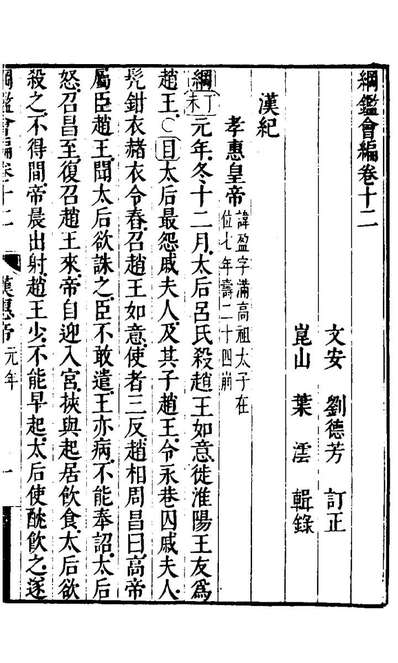 綱鑑會編卷十二
文安 劉德芳 訂正
崑山 葉澐 輯錄
漢紀
孝惠皇帝 諱盈字滿高祖太子在
位七年壽二十四崩
綱 丁未 元年.冬十二月.太后呂氏殺趙王如意.徙淮陽王友為
趙王.○目太后最怨戚夫人及其子趙王.令永巷囚戚夫人.
髡鉗衣赭衣令舂.召趙王如意.使者三反.趙相周昌曰.高帝
屬臣趙王.聞太后欲誅之.臣不敢遣.王亦病.不能奉詔.太后
怒.召昌至.復召趙王來.帝自迎入宮.挾與起居飲食.太后欲
殺之.不得間.帝晨出射.趙王少.不能早起.太后使酖飲之.遂
綱鑑會編卷十二 漢惠帝 元年 一